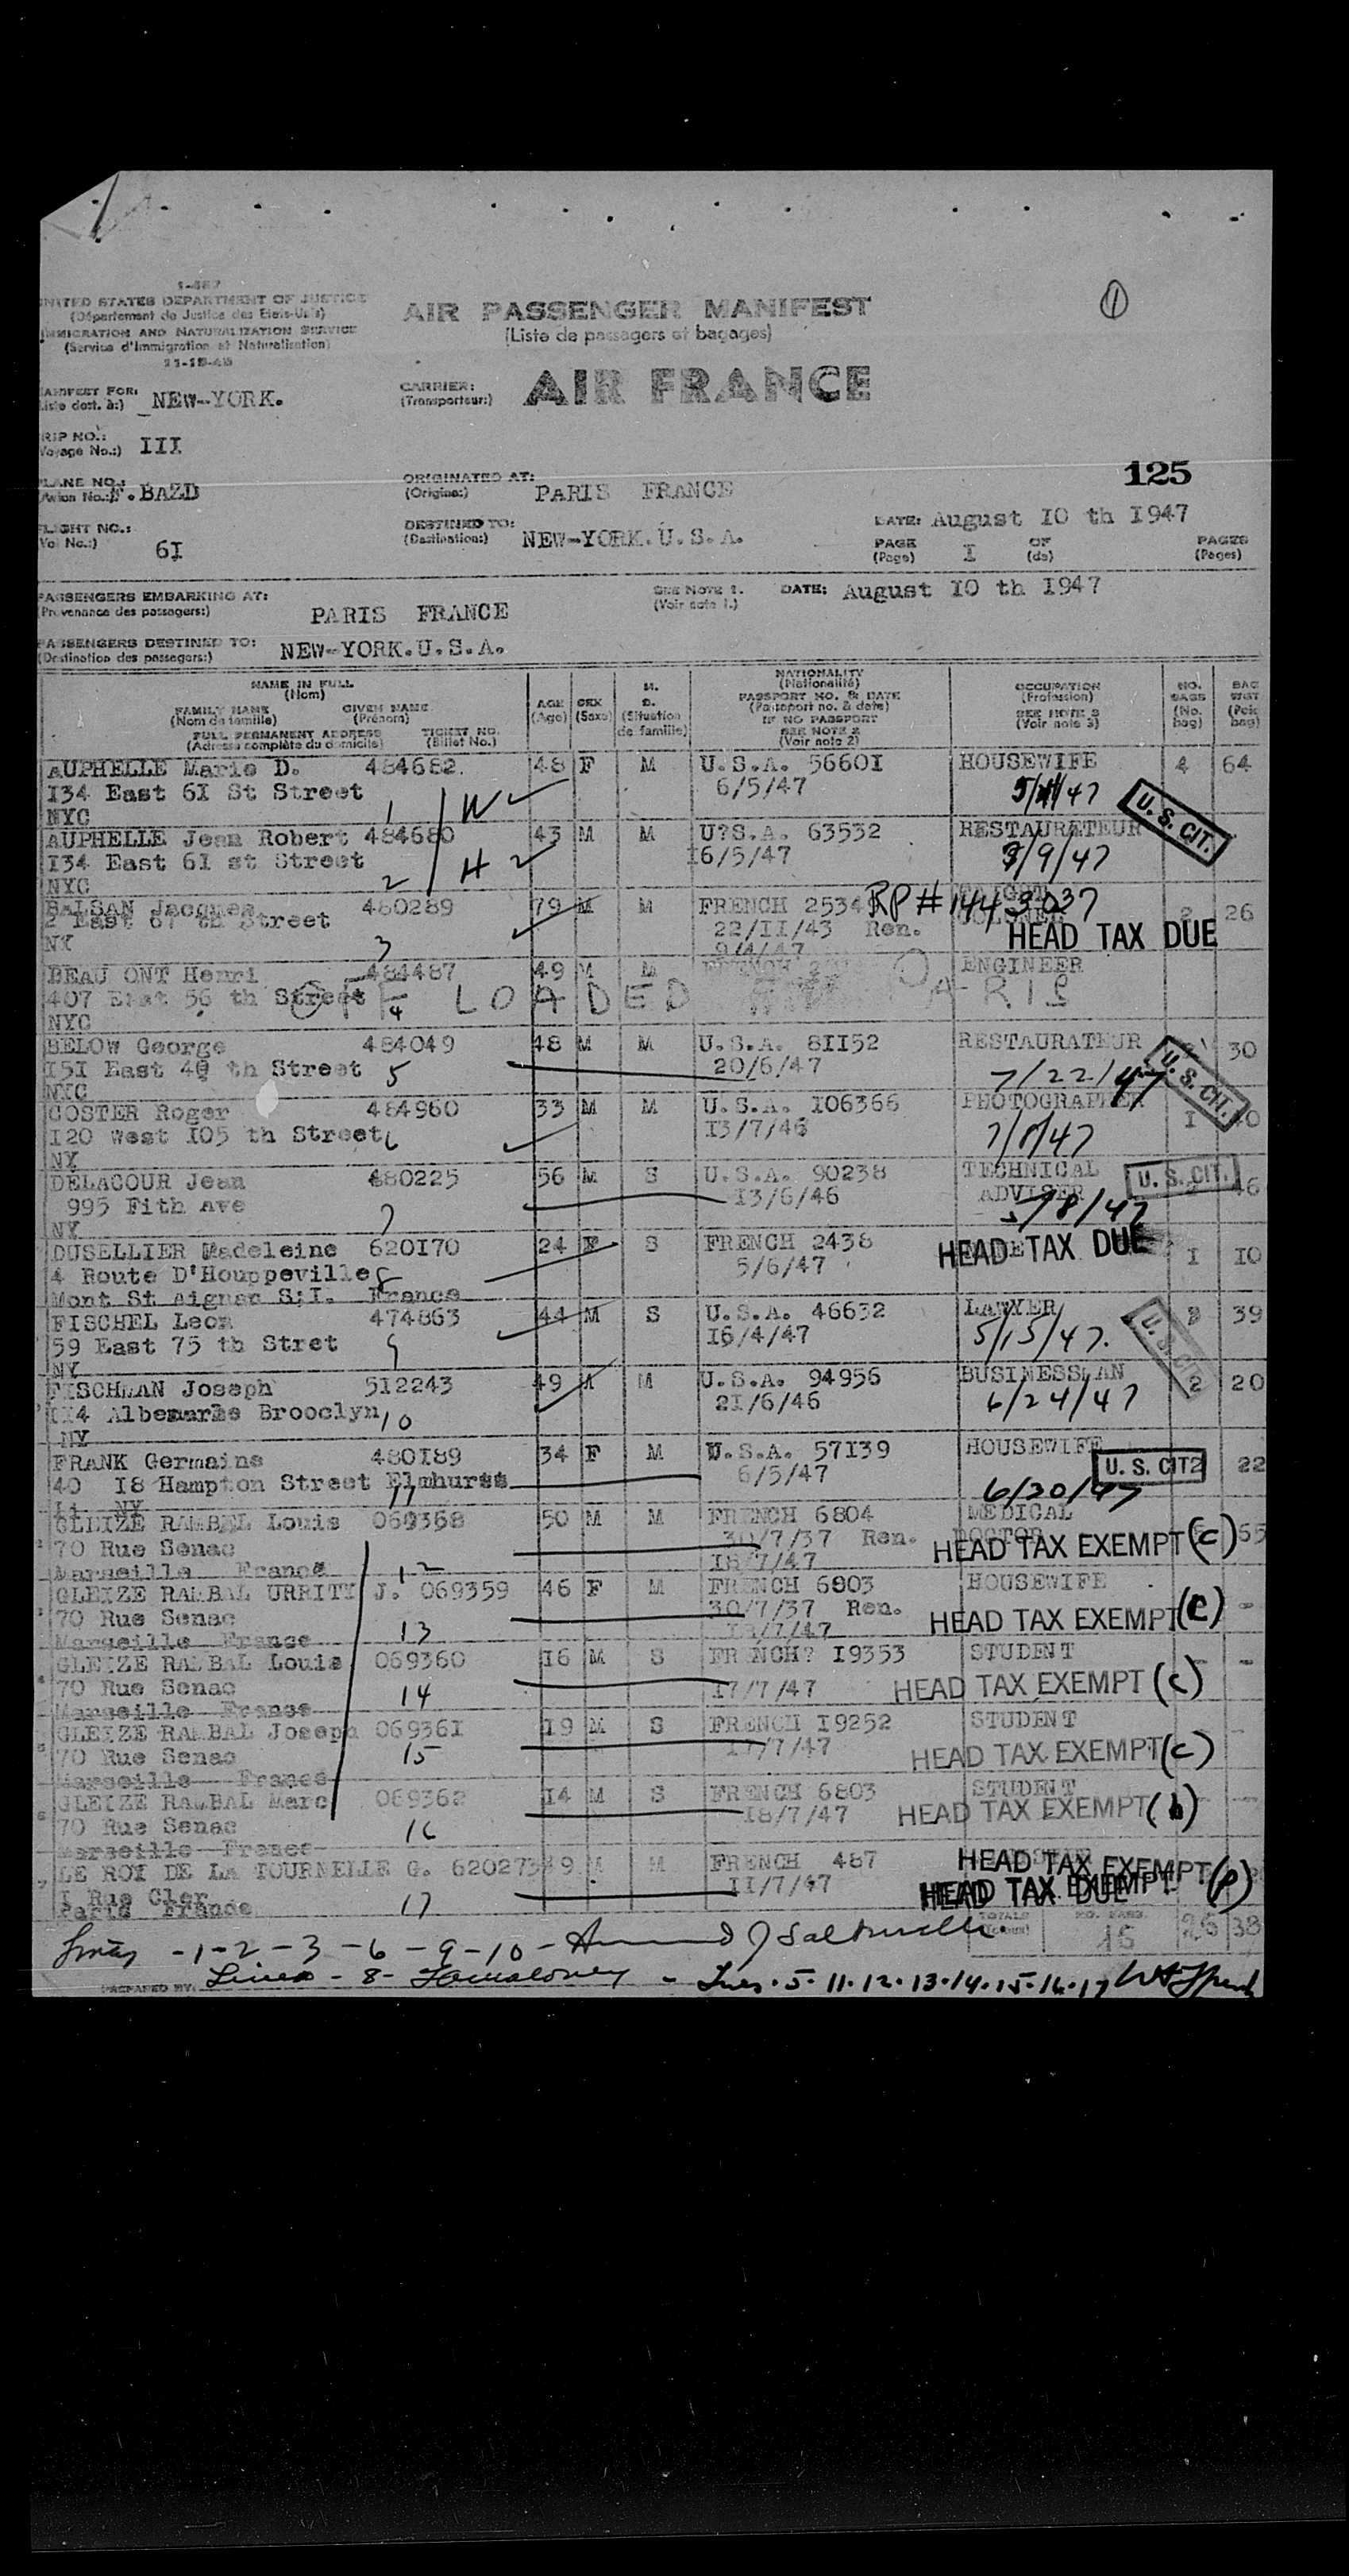 1
I-467
UNITED STATES DEPARTMENT OF JUSTICE
(Département de Justice des Etats-Unis)
IMMIGRATION AND NATURALIZATION SERVICE
(Service d'Immigration et Naturalisation)
11-15-45
AIR PASSENGER MANIFEST
(Liste de passagers et bagages)
MANIFEST FOR: NEW-YORK.
(Liste dest. à:)
CARRIER: AIR FRANCE
(Transporteur:)
TRIP NO.: III
(Voyage No.:)
125
PLANE NO.: F.BAZD
(Avion No.:)
ORIGINATED AT: PARIS FRANCE
(Origine:)
FLIGHT NO.: 6I
(Vol No.:)
DESTINED TO: NEW-YORK.U.S.A.
(Destination:)
DATE: August IO th I947
PAGE I OF PAGES
(Page) (de) (Pages)
PASSENGERS EMBARKING AT: PARIS FRANCE
(Provenance des passagers:)
SEE NOTE 1. DATE: August IO th I947
(Voir note 1.)
PASSENGERS DESTINED TO: NEW-YORK.U.S.A.
(Destination des passagers:)
NAME IN FULL
(Nom)
FAMILY NAME GIVEN NAME
(Nom de famille) (Prénom)
FULL PERMANENT ADDRESS TICKET NO.
(Adresse complète du domicile) (Billet No.)
AGE
(Age)
SEX
(Sexe)
M.
S.
(Situation
de famille)
NATIONALITY
(Nationalité)
PASSPORT NO. & DATE
(Passeport no. & date)
IF NO PASSPORT
SEE NOTE 2
(Voir note 2)
OCCUPATION
(Profession)
SEE NOTE 3
(Voir note 3)
NO.
BAGS
(No.
bag)
BAG
WGT
AUPHELLE Marie D. 484682. 48 F M U.S.A. 5660I HOUSEWIFE 4 64
I34 East 6I St Street 6/5/47
NYC 1 W U.S. CIT.
AUPHELLE Jean Robert 484680 43 M M U?S.A. 63532 RESTAURATEUR
I34 East 61 st Street I6/5/47 /9/47
NYC 2 H
BALSAN Jacques 480289 79 M M FRENCH RP # 26
2 East 67 th Street 22/II/43 Ren.
NY 3 9/4/47 HEAD TAX DUE
BEAU ONT Henri 484487 49 M M FRENCH ENGINEER
407 East 56 th Street 4 OFF LOADED PARIS
NYC
BELOW George 484049 48 M M U.S.A. 8II52 RESTAURATEUR 30
I5I East 40 th Street 5 20/6/47 7/22/47 U.S. CIT.
NYC
COSTER Roger 484960 33 M M U.S.A. I06366 PHOTOGRAPHER I
I20 West I05 th Street 6 I3/7/46 7/8/47
NY
DELACOUR Jean 480225 56 M S U.S.A. 90238 TECHNICAL
995 Fith Ave I3/6/46 ADVISER U.S. CIT. 46
NY 7 /8/47
DUSELLIER Madeleine 620I70 24 F S FRENCH 2438 HEAD TAX DUE I IO
4 Route D'Houppeville 8 5/6/47
Mont St Aignar S;I. France
FISCHEL Leon 474863 44 M S U.S.A. 46632 LAWYER 39
59 East 75 th Stret 9 I6/4/47 5/15/47.
NY
FISCHMAN Joseph 5I2243 49 M M U.S.A. 94956 BUSINESSMAN 2 20
II4 Albemarle Brooclyn 10 2I/6/46 6/24/47
NY
FRANK Germaine 480I89 34 F M U.S.A. 57I39 HOUSEWIFE 2 22
40 I8 Hampton Street Elmhurst 6/5/47 U.S. CIT
Li NY 11 6/20/47
GLEIZE RAMBAL Louis 069358 50 M M FRENCH 6804 MEDICAL
70 Rue Senac 30/7/37 Ren. DOCTOR
Marseille France 12 I8/7/47 HEAD TAX EXEMPT (c)
GLEIZE RAMBAL URRITY J. 069359 46 F M FRENCH 6803 HOUSEWIFE
70 Rue Senac 30/7/37 Ren. HEAD TAX EXEMPT (c) -
Marseille France 13
GLEIZE RAMBAL Louis 069360 I6 M S FRENCH? I9353 STUDENT -
70 Rue Senac 14 I7/7/47 HEAD TAX EXEMPT (c)
Marseille France
GLEIZE RAMBAL Joseph 06936I I9 M S FRENCH I9252 STUDENT
70 Rue Senac 15 I7/7/47 HEAD TAX EXEMPT (c)
Marseille France
GLEIZE RAMBAL Marc 069362 I4 M S FRENCH 6803 STUDENT
70 Rue Senac 16 I8/7/47 HEAD TAX EXEMPT (b)
Marseille France
LE ROY DE LA TOURNELLE G. M FRENCH 487 HEAD TAX EXEMPT (p)
I Rue Cler II/7/47 HEAD TAX DUE
Paris France 17
TOTALS
-1-2-3-6-9-10-
Lines -8-
5-11-12-13-14-15-16-17
PREPARED BY: